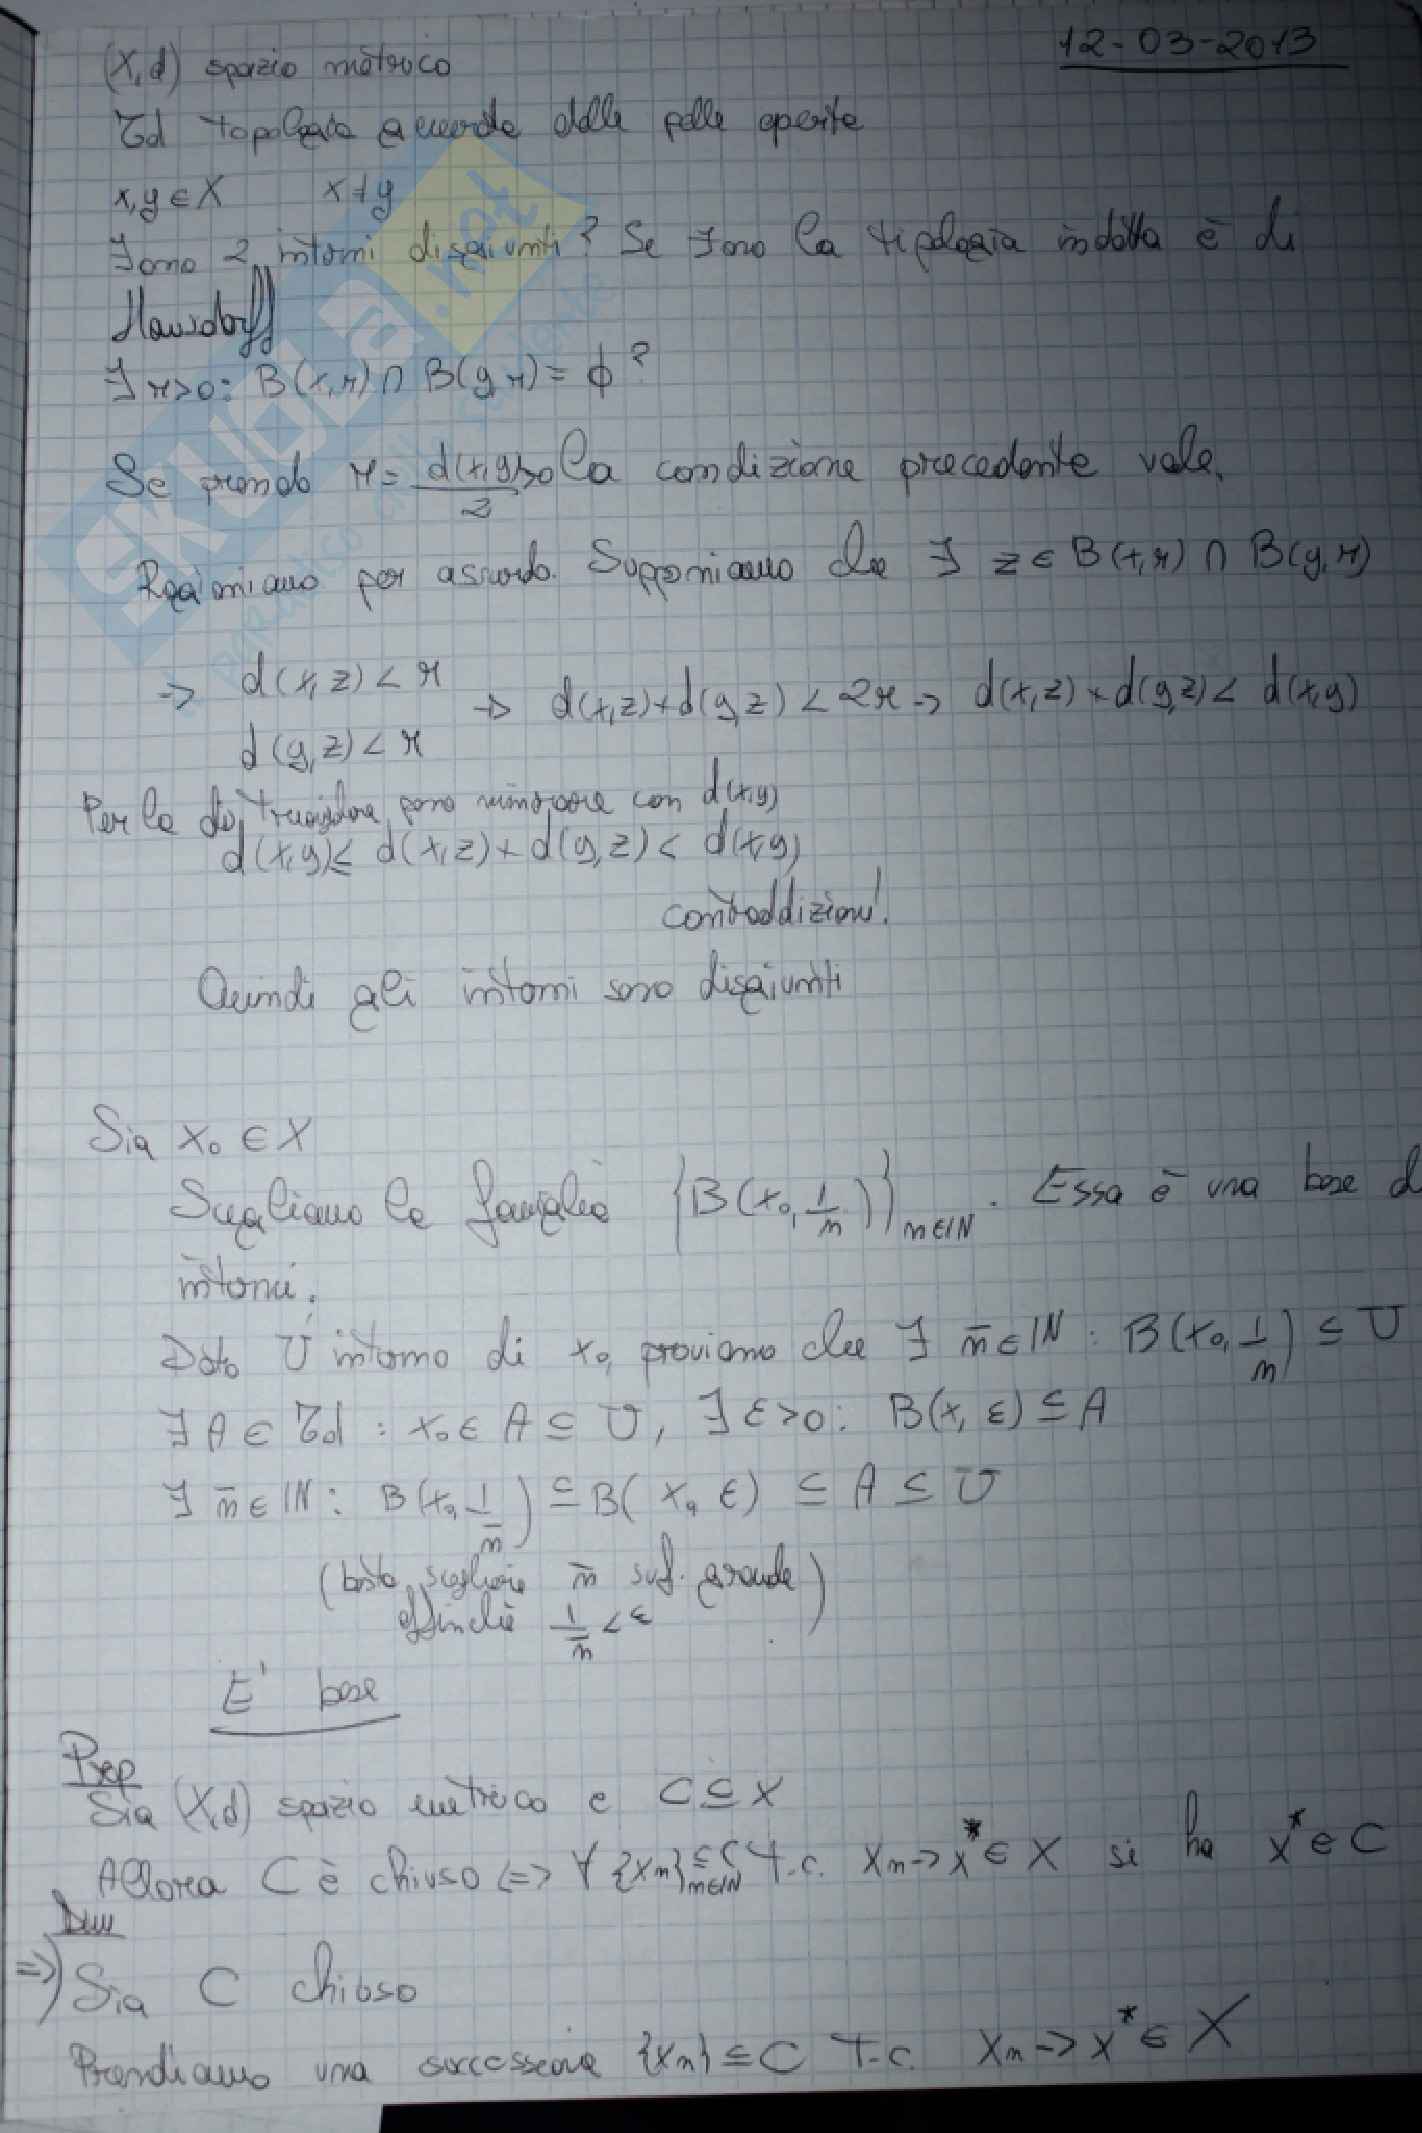 12-03-2013
(X,d) spazio metrico
τd topologia generata dalle palle aperte
x,y ∈ X x ≠ y
∃ono 2 intorni disgiunti? Se ∃ono la tipologia indotta è di
Hausdorff
∃ r>0: B(x,r) ∩ B(y,r) = ϕ ?
Se prendo r = d(x,y)/2 >0 la condizione precedente vale.
Ragioniamo per assurdo. Supponiamo che ∃ z ∈ B(x,r) ∩ B(y,r)
⇒ d(x,z) < r
d(y,z) < r
⇒ d(x,z)+d(y,z) < 2r → d(x,z)+d(y,z) < d(x,y)
Per la dis. triangolare posso minorare con d(x,y)
d(x,y) ≤ d(x,z)+d(y,z) < d(x,y)
contraddizione!
Quindi gli intorni sono disgiunti
Sia x₀ ∈ X
Scegliamo la famiglia {B(x₀, 1/n)} n∈ℕ. Essa è una base di
intorni.
Dato U intorno di x₀, proviamo che ∃ n̄ ∈ ℕ : B(x₀, 1/n) ⊆ U
∃ A ∈ τd : x₀ ∈ A ⊆ U, ∃ ε>0: B(x, ε) ⊆ A
∃ n̄ ∈ ℕ : B(x₀, 1/n̄) ⊆ B(x₀, ε) ⊆ A ⊆ U
(basta scegliere n̄ suf. grande
affinchè 1/n̄ < ε)
E' base
Prop
Sia (X,d) spazio metrico e C ⊆ X
Allora C è chiuso ⇔ ∀ {xn} n∈ℕ ⊆ C t.c. xn → x* ∈ X si ha x* ∈ C
Dim
⇒) Sia C chiuso
Prendiamo una successione {xn} ⊆ C t.c. xn → x* ∈ X
SKUOLA.net